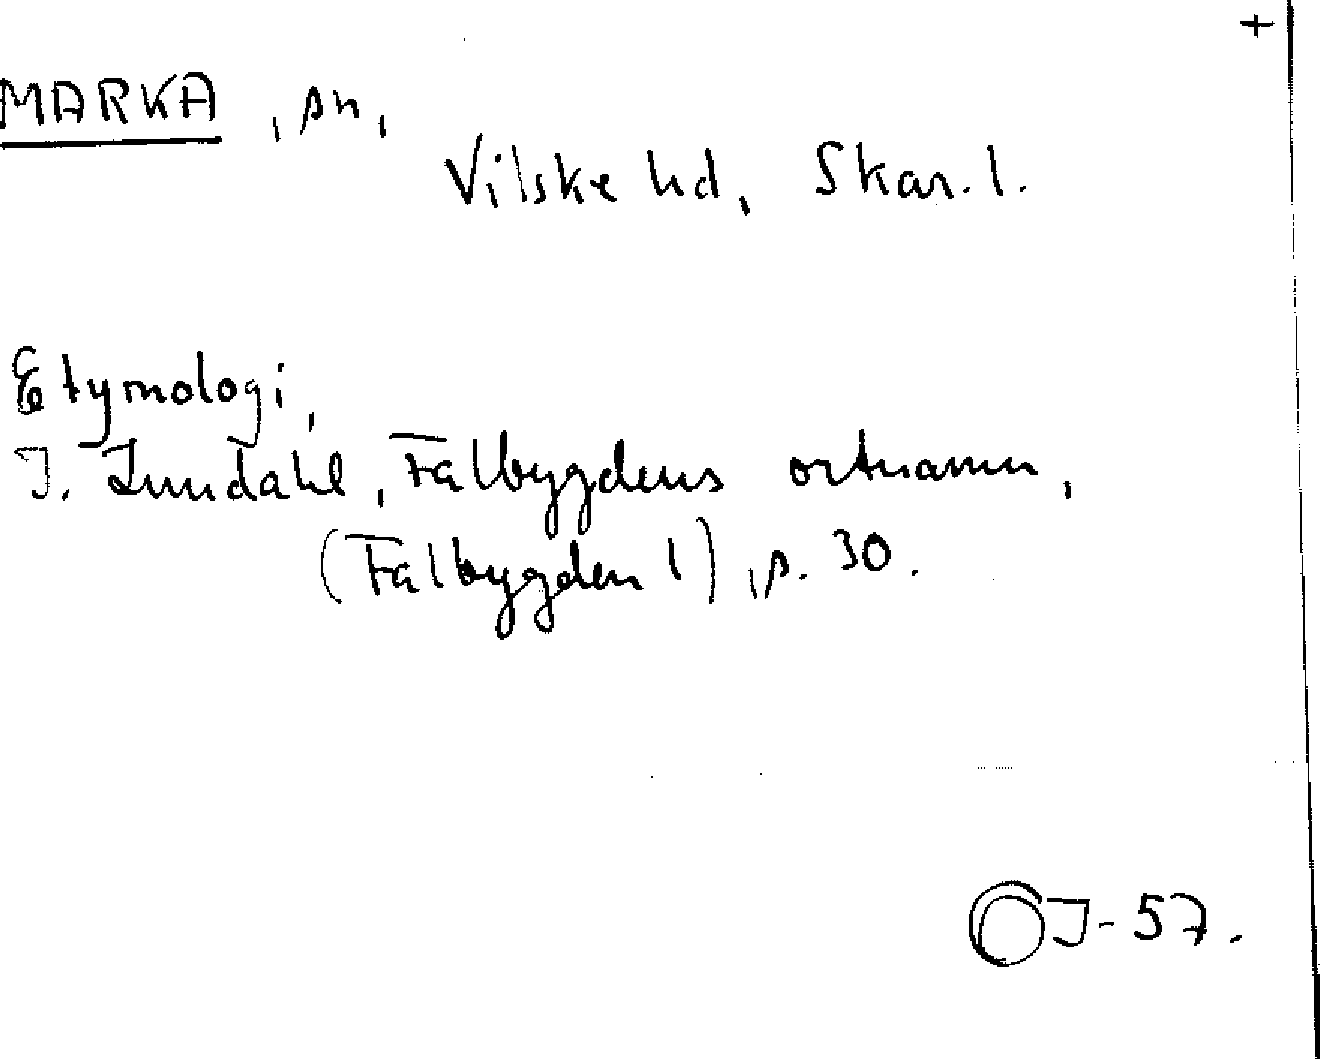 +
MARKA, sn,
Vilske hd, Skar. l.
Etymologi,
I. Lundahl, Falbygdens ortnamn,
(Falbygden 1), s. 30.
OJ-57.